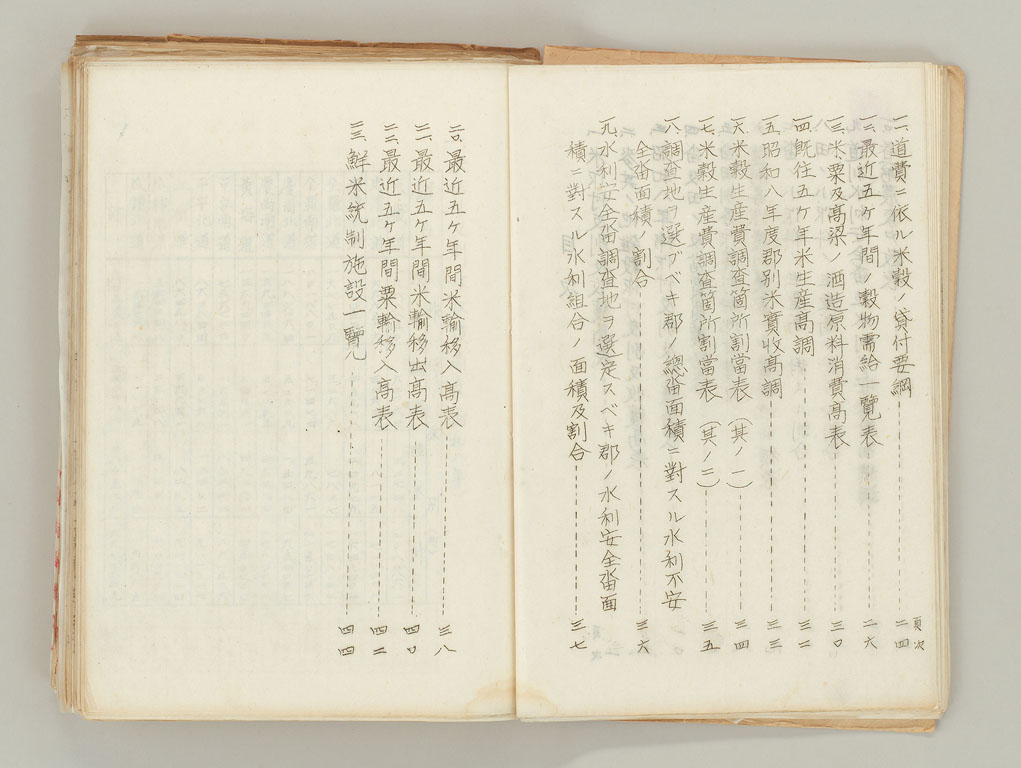 頁次
一一、道費ニ依ル米穀ノ貸付要綱 二四
一二、最近五ケ年間ノ穀物需給一覽表 二六
一三、米粟及高梁ノ酒造原料消費高表 三〇
一四、既往五ケ年米生産高調 三二
一五、昭和八年度郡別米實收高調 三三
一六、米穀生産費調査箇所割當表(其ノ一) 三四
一七、米穀生産費調査箇所割當表(其ノ二) 三五
一八、調査地ヲ選ブベキ郡ノ總畓面積ニ對スル水利不安
全畓面積ノ割合 三六
一九、水利安全畓調査地ヲ選定スベキ郡ノ水利安全畓面
積ニ對スル水利組合ノ面積及割合 三七
二〇、最近五ケ年間米輸移入高表 三八
二一、最近五ケ年間米輸移出高表 四〇
二二、最近五ケ年間粟輸移入高表 四二
二三、鮮米統制施設一覽 四四